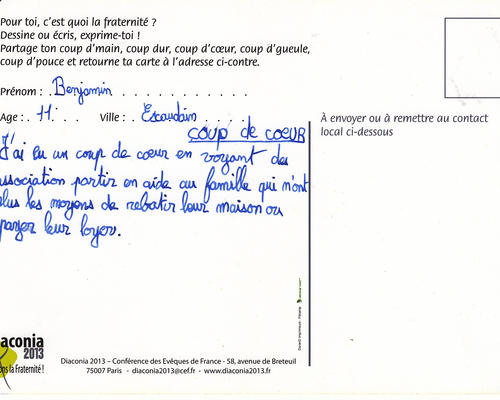 Pour toi, c'est quoi la fraternité ?
Dessine ou écris, exprime-toi !
Partage ton coup d'main, coup dur, coup d'cœur, coup d'gueule,
coup d'pouce et retourne ta carte à l'adresse ci-contre.
Prénom : . Benjamin . . . . . . . . . . .
Age : . 11. . . Ville : . Escaudain . . . .
À envoyer ou à remettre au contact
local ci-dessous
coup de coeur
J'ai eu un coup de coeur en voyant des
association partir en aide au famille qui n'ont
plus les moyens de rebatir leur maison ou
payer leur loyer.
iaconia
2013
ons la Fraternité !
Diaconia 2013 – Conférence des Evêques de France - 58, avenue de Breteuil
75007 Paris - diaconia2013@cef.fr - www.diaconia2013.fr